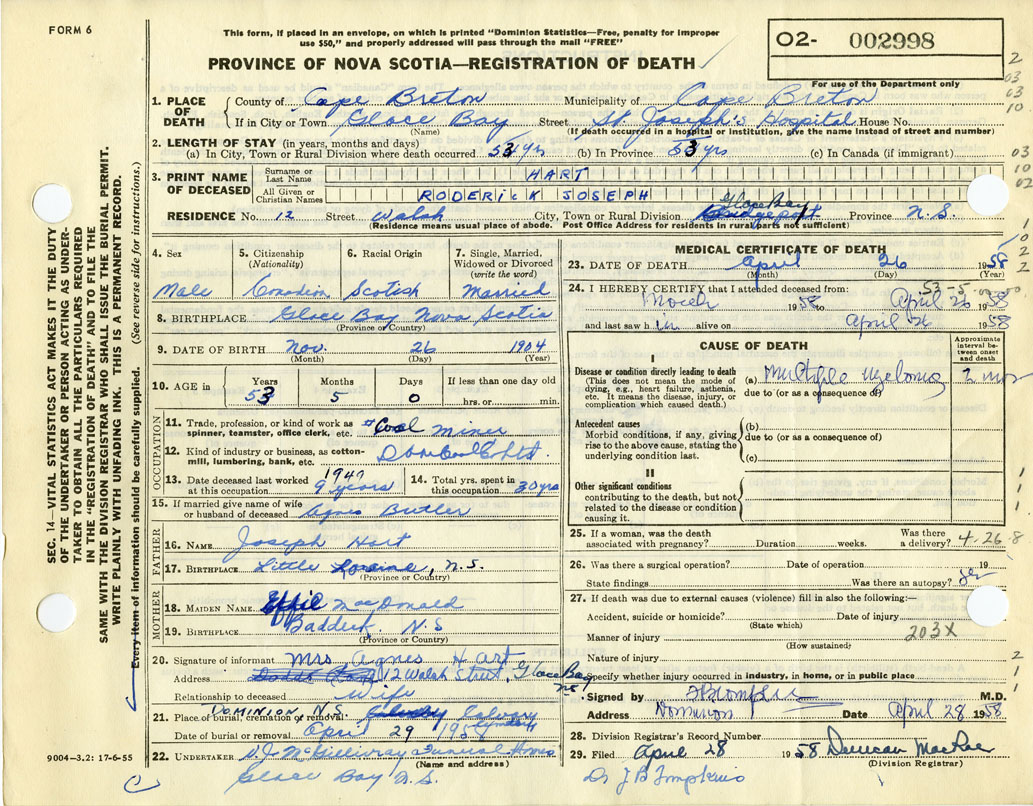 FORM 6
This form, if placed in an envelope, on which is printed "Dominion Statistics—Free, penalty for improper
use $50," and properly addressed will pass through the mail "FREE"
02- 002998
For use of the Department only
PROVINCE OF NOVA SCOTIA—REGISTRATION OF DEATH
1. PLACE OF DEATH County of Cape Breton Municipality of Cape Breton
If in City or Town Glace Bay Street St Joseph's Hospital House No.
(Name) (If death occurred in a hospital or institution, give the name instead of street and number)
2. LENGTH OF STAY (in years, months and days)
(a) In City, Town or Rural Division where death occurred 53 yrs (b) In Province 53 yrs (c) In Canada (if immigrant)
3. PRINT NAME OF DECEASED Surname or Last Name HART
All Given or Christian Names RODERICK JOSEPH
RESIDENCE No. 12 Street Walsh City, Town or Rural Division Glace Bay Province N.S.
(Residence means usual place of abode. Post Office Address for residents in rural parts not sufficient)
4. Sex 5. Citizenship (Nationality) 6. Racial Origin 7. Single, Married, Widowed or Divorced (write the word)
Male Canadian Scotish Married
8. BIRTHPLACE Glace Bay Nova Scotia
(Province or Country)
9. DATE OF BIRTH Nov. 26 1904
(Month) (Day) (Year)
10. AGE in Years Months Days If less than one day old
53 5 0 hrs. or min.
OCCUPATION
11. Trade, profession, or kind of work as spinner, teamster, office clerk, etc. Coal miner
12. Kind of industry or business, as cotton-mill, lumbering, bank, etc.
13. Date deceased last worked at this occupation 1949 9 years 14. Total yrs. spent in this occupation 30 yrs
15. If married give name of wife or husband of deceased Agnes Butler
FATHER
16. NAME Joseph Hart
17. BIRTHPLACE Little Loraine, N.S.
(Province or Country)
MOTHER
18. MAIDEN NAME Effie MacDonald
19. BIRTHPLACE Baddeck N.S
(Province or Country)
20. Signature of informant Mrs Agnes Hart
Address 12 Walsh Street, Glace Bay
Relationship to deceased Wife
21. Place of burial, cremation or removal DOMINION N.S. Calvary
Date of burial or removal April 29 1958
22. UNDERTAKER V.J. McGillivray Funeral Home
(Name and address)
Glace Bay N.S.
9004—3.2: 17-6-55
SEC. 14—VITAL STATISTICS ACT MAKES IT THE DUTY
OF THE UNDERTAKER OR PERSON ACTING AS UNDER-
TAKER TO OBTAIN ALL THE PARTICULARS REQUIRED
IN THE "REGISTRATION OF DEATH" AND TO FILE THE
SAME WITH THE DIVISION REGISTRAR WHO SHALL ISSUE THE BURIAL PERMIT.
WRITE PLAINLY WITH UNFADING INK. THIS IS A PERMANENT RECORD.
Every item of information should be carefully supplied. (See reverse side for instructions.)
MEDICAL CERTIFICATE OF DEATH
23. DATE OF DEATH April 26 1958
(Month) (Day) (Year)
53-5-0
24. I HEREBY CERTIFY that I attended deceased from:
March 1958 to April 26 1958
and last saw him alive on April 26 1958
CAUSE OF DEATH
Approximate interval between onset and death
I
Disease or condition directly leading to death
(This does not mean the mode of dying, e.g., heart failure, asthenia, etc. It means the disease, injury, or complication which caused death.)
(a) Multiple myeloma 2 mos
due to (or as a consequence of)
Antecedent causes
Morbid conditions, if any, giving rise to the above cause, stating the underlying condition last.
(b)
due to (or as a consequence of)
(c)
II
Other significant conditions
contributing to the death, but not related to the disease or condition causing it.
25. If a woman, was the death associated with pregnancy? Duration weeks. Was there a delivery? 4-26-8
26. Was there a surgical operation? Date of operation 19
State findings Was there an autopsy?
27. If death was due to external causes (violence) fill in also the following:—
Accident, suicide or homicide? Date of injury
(State which)
203X
Manner of injury
(How sustained)
Nature of injury
Specify whether injury occurred in industry, in home, or in public place
Signed by JB Tompkins M.D.
Address Dominion Date April 28 1958
28. Division Registrar's Record Number
29. Filed April 28 1958 Duncan MacRae
(Division Registrar)
Dr J B Tompkins